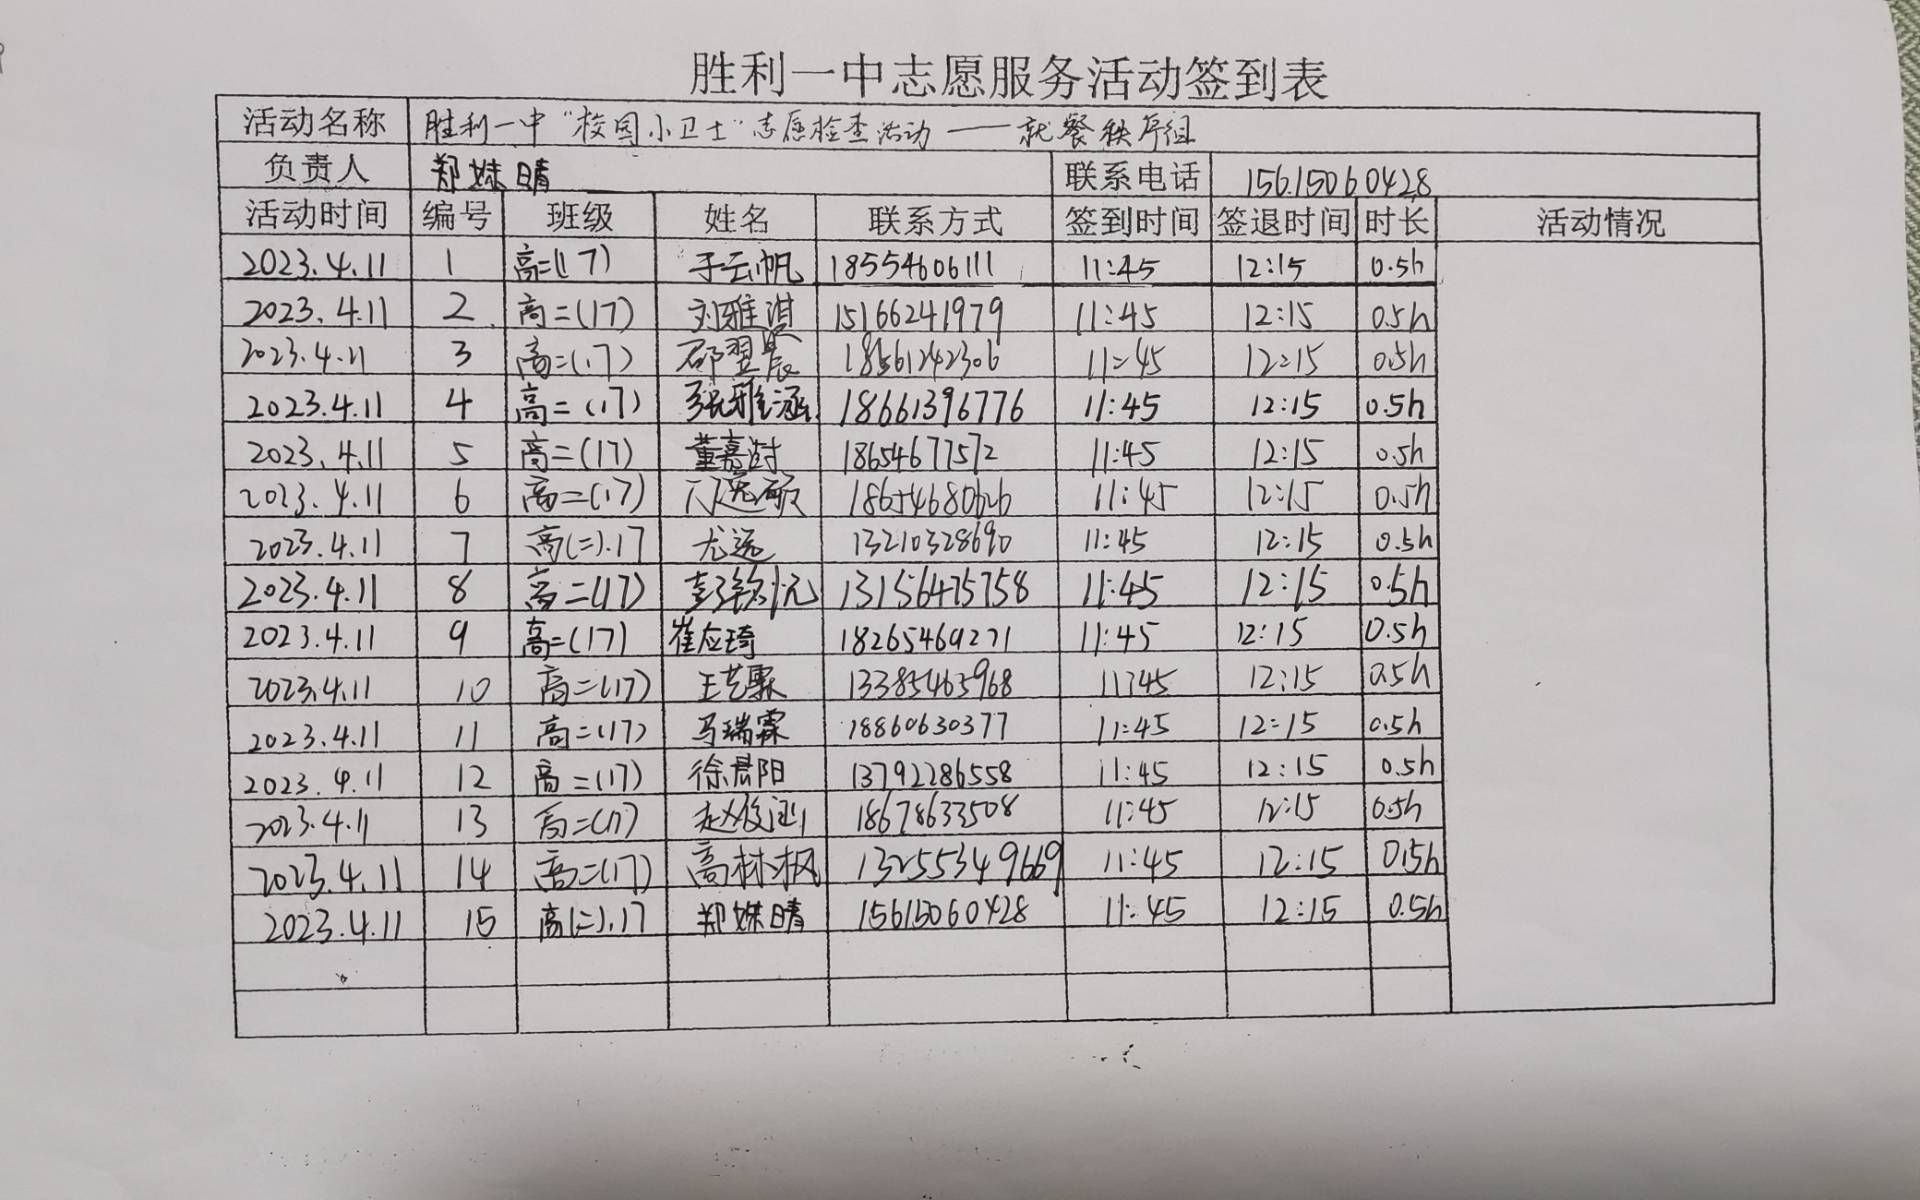 胜利一中志愿服务活动签到表
活动名称 胜利一中"校园小卫士"志愿检查活动——就餐秩序组
负责人 郑姝晴 联系电话 15615060428
活动时间 编号 班级 姓名 联系方式 签到时间 签退时间 时长 活动情况
2023.4.11 1 高二(17) 于云帆 18554606111 11:45 12:15 0.5h
2023.4.11 2 高二(17) 刘雅淇 15166241979 11:45 12:15 0.5h
2023.4.11 3 高二(17) 邵翌宸 18561242306 11:45 12:15 0.5h
2023.4.11 4 高二(17) 张雅涵 18661396776 11:45 12:15 0.5h
2023.4.11 5 高二(17) 董嘉 18654677572 11:45 12:15 0.5h
2023.4.11 6 高二(17) 18654680626 11:45 12:15 0.5h
2023.4.11 7 高(二).17 尤远 13210328690 11:45 12:15 0.5h
2023.4.11 8 高二(17) 13156475758 11:45 12:15 0.5h
2023.4.11 9 高二(17) 崔应琦 18265469271 11:45 12:15 0.5h
2023.4.11 10 高二(17) 王艺霖 13385463968 11:45 12:15 0.5h
2023.4.11 11 高二(17) 马瑞霖 18860630377 11:45 12:15 0.5h
2023.4.11 12 高二(17) 徐晨阳 13792286558 11:45 12:15 0.5h
2023.4.11 13 高二(17) 18678633508 11:45 12:15 0.5h
2023.4.11 14 高二(17) 高林枫 13255349669 11:45 12:15 0.5h
2023.4.11 15 高(二).17 郑姝晴 15615060428 11:45 12:15 0.5h